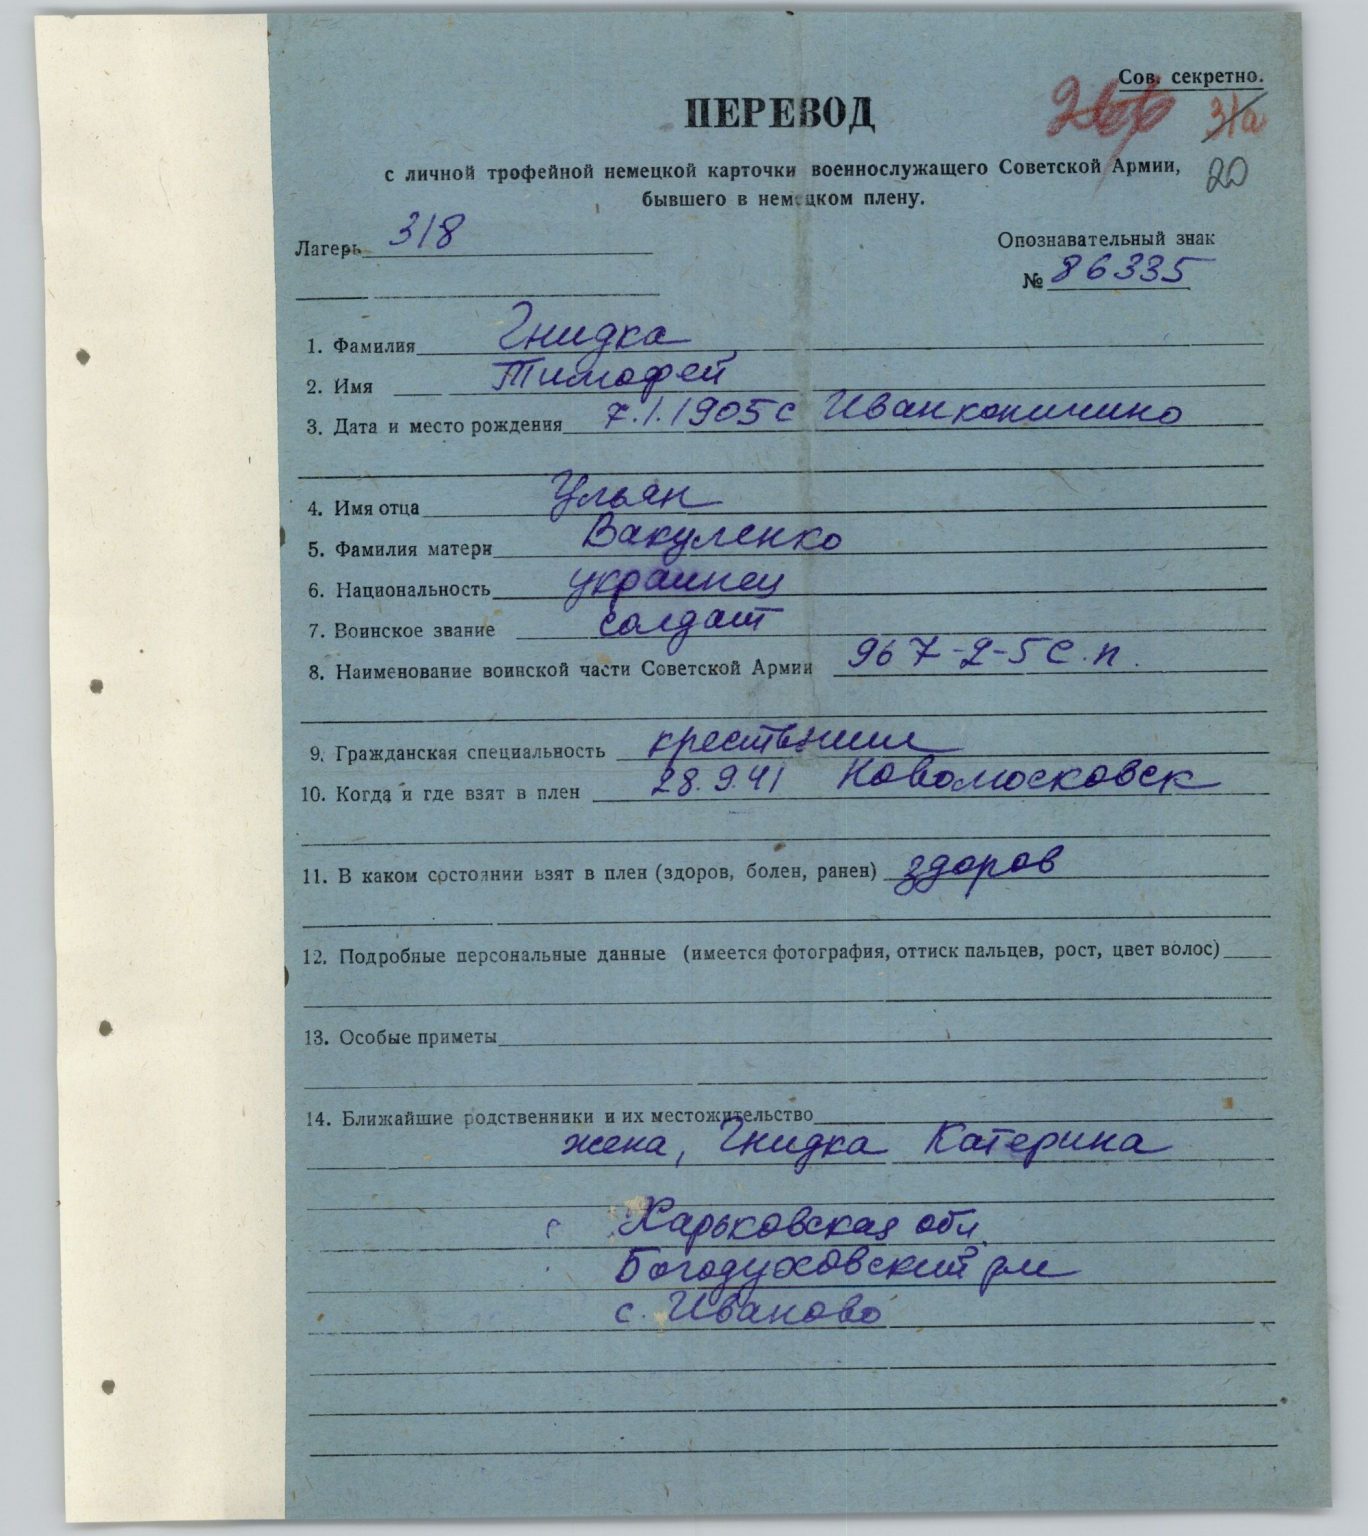 Сов. секретно.
266 31а
ПЕРЕВОД
с личной трофейной немецкой карточки военнослужащего Советской Армии,
20
бывшего в немецком плену.
Лагерь 318
Опознавательный знак
№ 86335
1. Фамилия Гнидка
2. Имя Тимофей
3. Дата и место рождения 7.1.1905 с
4. Имя отца Ульян
5. Фамилия матери Вакуленко
6. Национальность украинец
7. Воинское звание солдат
8. Наименование воинской части Советской Армии 967-2-5 с.п.
9. Гражданская специальность
10. Когда и где взят в плен 28.9.41 Новомосковск
11. В каком состоянии взят в плен (здоров, болен, ранен) здоров
12. Подробные персональные данные (имеется фотография, оттиск пальцев, рост, цвет волос)
13. Особые приметы
14. Ближайшие родственники и их местожительство
жена, Гнидка Катерина
Харьковская обл.
Богодуховский
с. Иваново